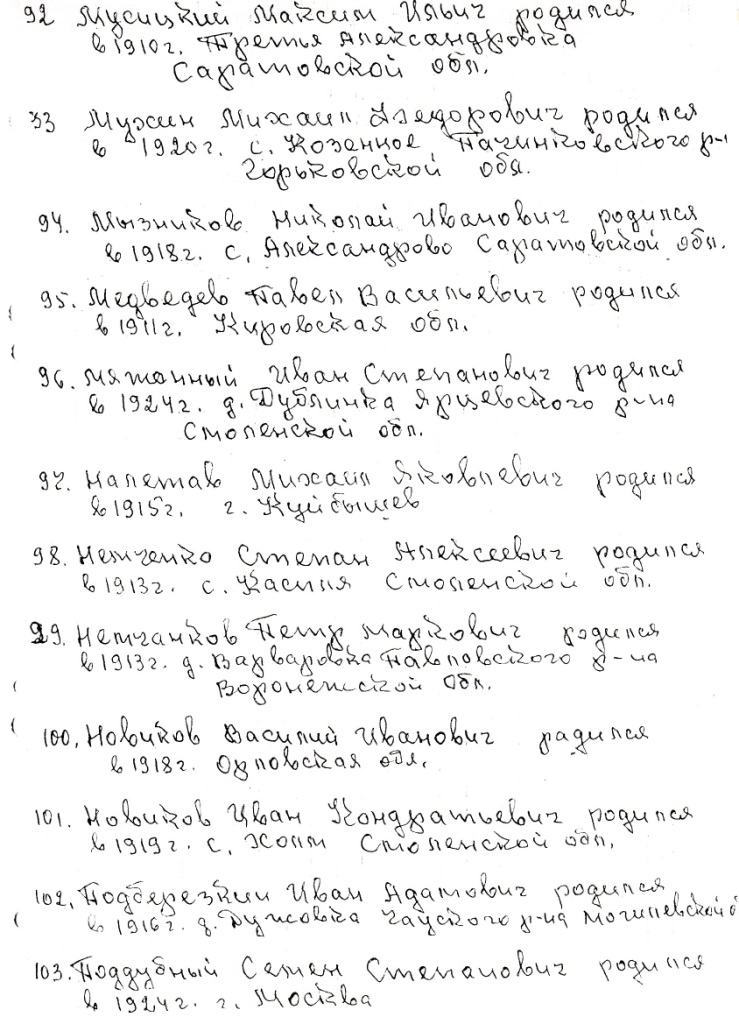 92 Мусицкий Максим Ильич родился
в 1910г. Третья Александровка
Саратовской обл.
93 Мухин Михаил Федорович родился
в 1920г. с. Козенное Починковского р-
Горьковской обл.
94. Мызников Николай Иванович родился
в 1918г. с. Александрово Саратовской обл.
95. Медведев Павел Васильевич родился
в 1911г. Кировская обл.
96. Мятанный Иван Степанович родился
в 1924г. д. Дублинка Ярцевского р-на
Смоленской обл.
97. Налетав Михаил Яковлевич родился
в 1915г. г. Куйбышев
98. Нетченко Степан Алексеевич родился
в 1913г. с. Каспля Смоленской обл.
99. Нетчанков Петр Маркович родился
в 1913г. д. Варваровка Павловского р-на
Воронежской обл.
100. Новиков Василий Иванович радился
в 1918г. Орловская обл.
101. Новиков Иван Кондратьевич родился
в 1919г. с. Холм Смоленской обл.
102. Подберезкин Иван Адамович родился
в 1916г. д. Дужовка Чауского р-на Могилевской о
103. Поддубный Семен Степанович родился
в 1924г. г. Москва